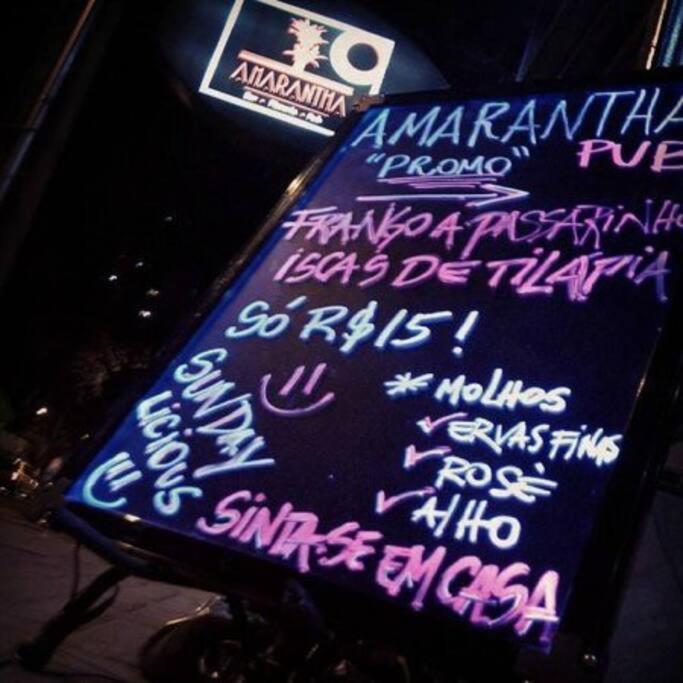 AMARANTHA
Bar • Pizzaria • Pub
AMARANTHA
PUB
"PROMO"
FRANGO A PASSARINHO
ISCAS DE TILÁPIA
SÓ R$15!
* MOLHOS
ERVAS FINAS
ROSÈ
AlHO
SUNDAY
LICIOUS
SINTA-SE EM CASA